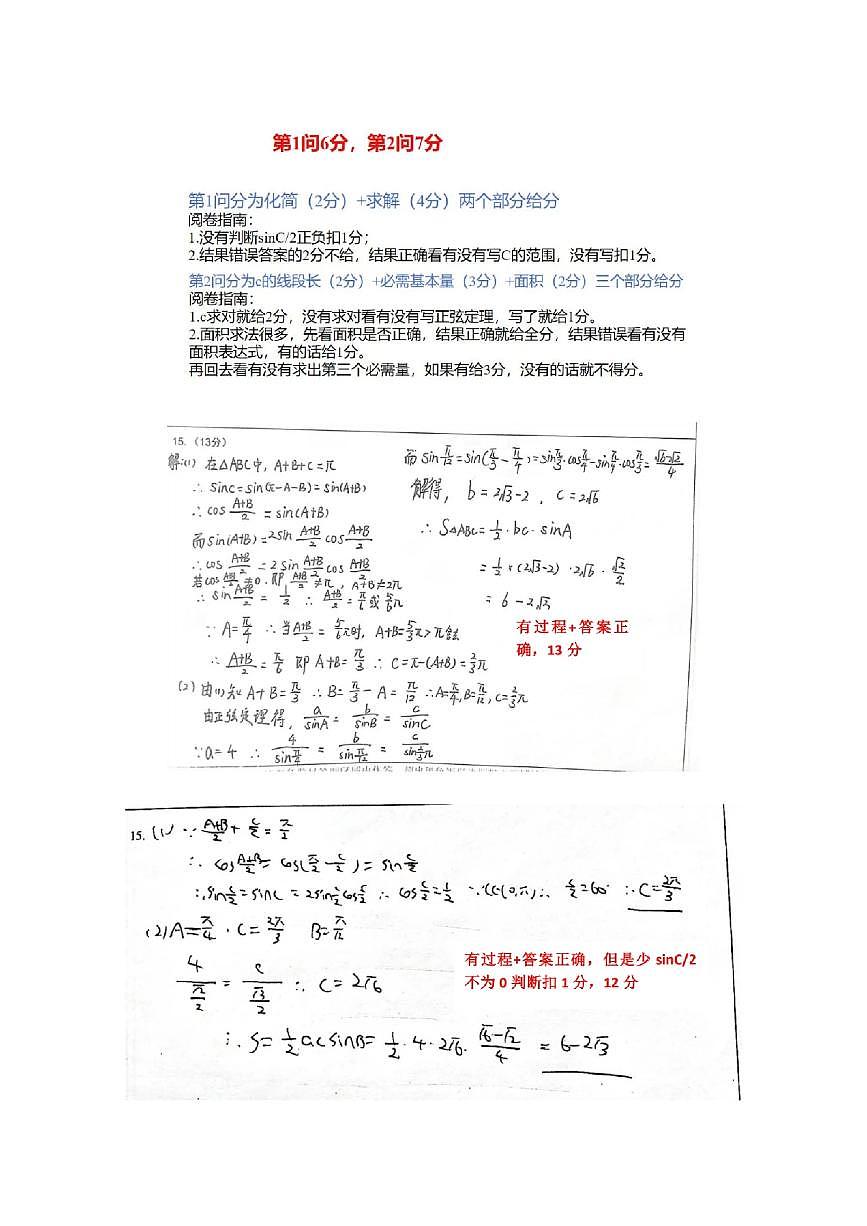 第1问6分，第2问7分
第1问分为化简（2分）+求解（4分）两个部分给分
阅卷指南：
1.没有判断sinC/2正负扣1分；
2.结果错误答案的2分不给，结果正确看有没有写C的范围，没有写扣1分。
第2问分为c的线段长（2分）+必需基本量（3分）+面积（2分）三个部分给分
阅卷指南：
1.c求对就给2分，没有求对看有没有写正弦定理，写了就给1分。
2.面积求法很多，先看面积是否正确，结果正确就给全分，结果错误看有没有
面积表达式，有的话给1分。
再回去看有没有求出第三个必需量，如果有给3分，没有的话就不得分。
15.（13分）
解:(1) 在△ABC中, A+B+C=π
∴ sinC=sin(π-A-B)=sin(A+B)
∴ cos (A+B)/2 = sin(A+B)
而 sin(A+B)=2sin (A+B)/2 cos (A+B)/2
∴ cos (A+B)/2 = 2sin (A+B)/2 cos (A+B)/2
若cos (A+B)/2 ≠0, 即 (A+B)/2 ≠π, A+B≠2π
∴ sin (A+B)/2 = 1/2 ∴ (A+B)/2 = π/6 或 5/6π
∵ A=π/4 ∴ 当 (A+B)/2 = 5/6π时, A+B=5/3π>π 舍
∴ (A+B)/2 = π/6 即 A+B=π/3 ∴ C=π-(A+B)=2/3π
(2) 由(1)知 A+B=π/3 ∴B=π/3-A=π/12 ∴A=π/4,B=π/12,C=2/3π
由正弦定理得, a/sinA = b/sinB = c/sinC
∵a=4 ∴ 4/sin π/4 = b/sin π/12 = c/sin 2/3π
而 sin π/12 = sin(π/3-π/4)=sin π/3·cos π/4-sin π/4·cos π/3=(√6-√2)/4
解得, b=2√3-2 , c=2√6
∴ S△ABC=1/2·bc·sinA
=1/2×(2√3-2)·2√6·√2/2
=6-2√3
有过程+答案正
确，13 分
15. (1) ∵ (A+B)/2+C/2=π/2
∴ cos (A+B)/2=cos(π/2-C/2)=sin C/2
∴sin C/2=sinC=2sin C/2 cos C/2 ∴ cos C/2=1/2 ∵C∈(0,π)∴ C/2=60° ∴C=2π/3
(2)A=π/4 , C=2π/3 B=π/12
4/(√2/2) = c/(√3/2) ∴ c=2√6
∴ S=1/2 acsinB=1/2·4·2√6·(√6-√2)/4 =6-2√3
有过程+答案正确，但是少 sinC/2
不为 0 判断扣 1 分，12 分